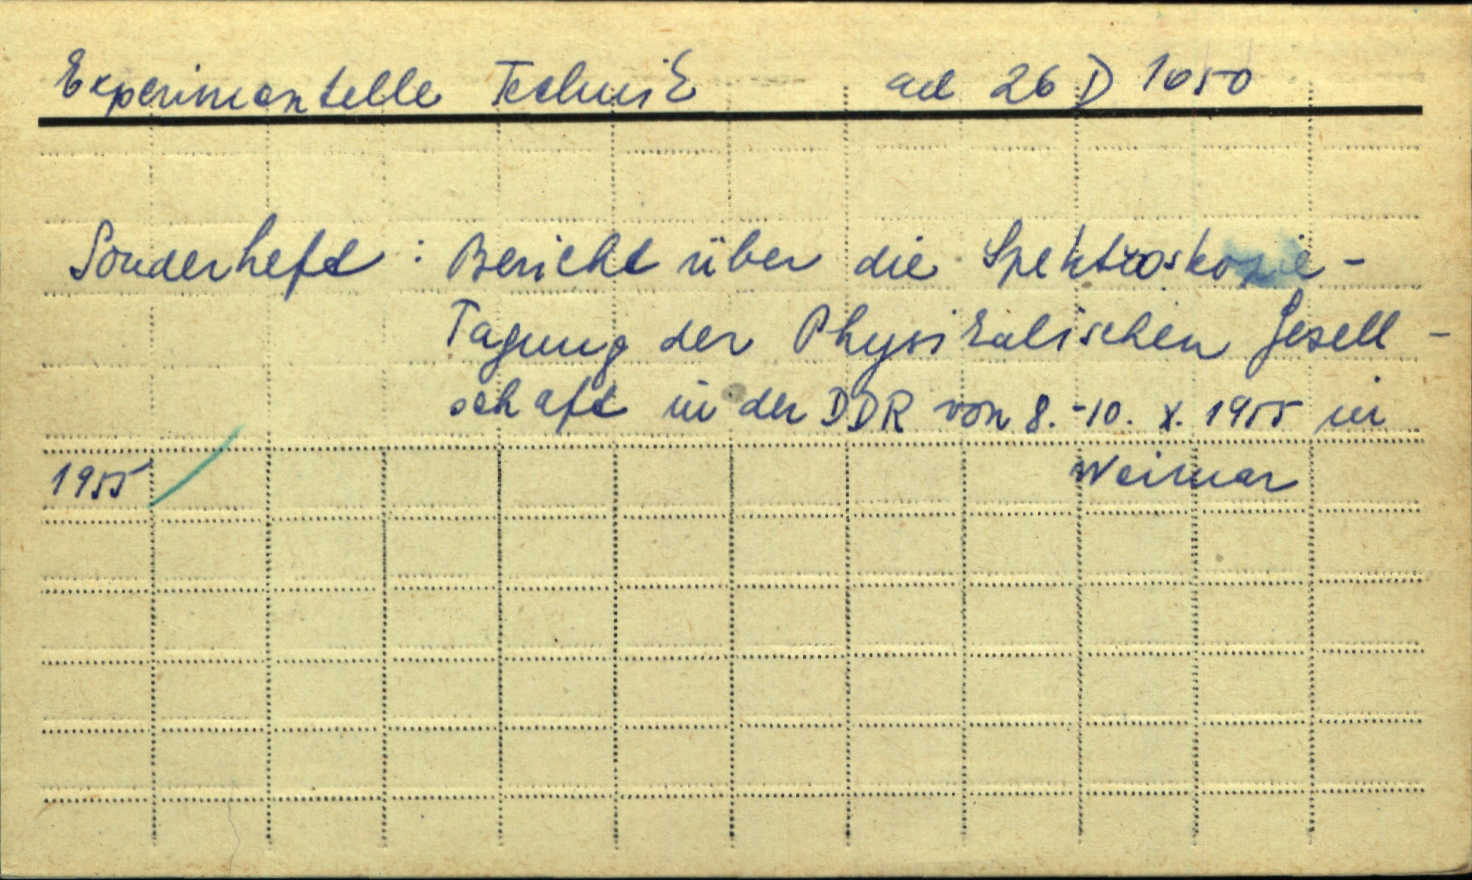 Experimentelle Technik ad 26 D 1050
Sonderheft : Bericht über die Spektroskopie-
Tagung der Physikalischen Gesell-
schaft in der DDR von 8.-10. X. 1955 in
Weimar
1955